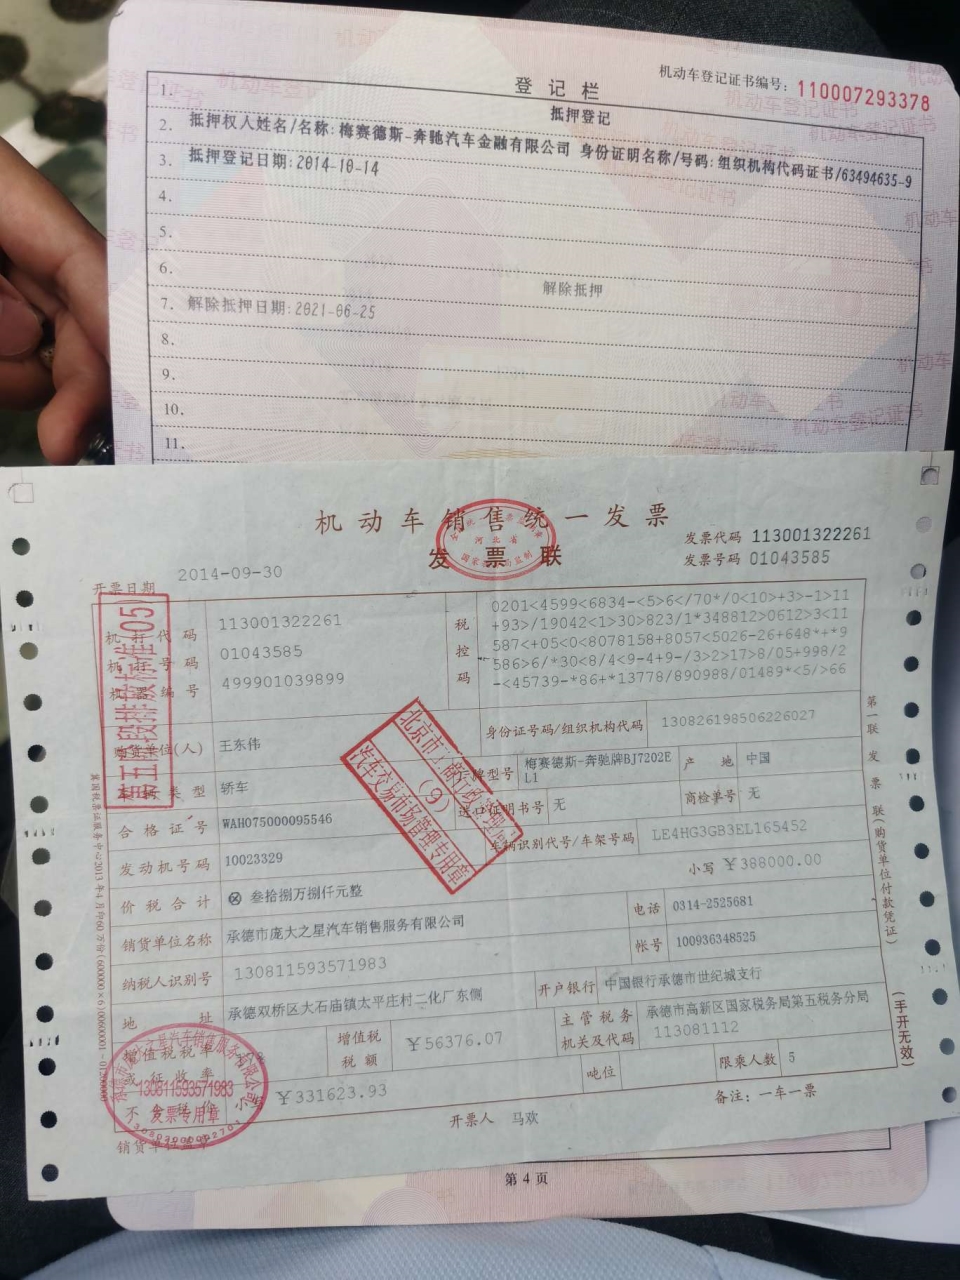 机动车登记证书编号：110007293378
登记栏
1.
抵押登记
2. 抵押权人姓名/名称:梅赛德斯-奔驰汽车金融有限公司 身份证明名称/号码:组织机构代码证书/63494635-9
3. 抵押登记日期:2014-10-14
4.
5.
6.
解除抵押
7. 解除抵押日期:2021-06-25
8.
9.
10.
11.
机动车销售统一发票
发票联
河北省
发票代码 113001322261
发票号码 01043585
开票日期 2014-09-30
机打代码 113001322261
机打号码 01043585
机器编号 499901039899
税控码
0201<4599<6834-<5>6</70*/0<10>+3>-1>11
+93>/19042<1>30>823/1*348812>0612>3<11
587<+05<0<8078158+8057<5026-26+648*+*9
586>6/*30<8/4<9-4+9-/3>2>17>8/05+998/2
-<45739-*86+*13778/890988/01489*<5/>66
第五阶段排放标准05
购货单位(人) 王东伟
身份证号码/组织机构代码 130826198506226027
车辆类型 轿车
厂牌型号 梅赛德斯-奔驰牌BJ7202EL1
产地 中国
合格证号 WAH075000095546
进口证明书号 无
商检单号 无
发动机号码 10023329
车辆识别代号/车架号码 LE4HG3GB3EL165452
价税合计 ⊗ 叁拾捌万捌仟元整
小写 ￥388000.00
销货单位名称 承德市庞大之星汽车销售服务有限公司
电话 0314-2525681
纳税人识别号 130811593571983
帐号 100936348525
地址 承德双桥区大石庙镇太平庄村二化厂东侧
开户银行 中国银行承德市世纪城支行
增值税税率或征收率
增值税税额 ￥56376.07
主管税务机关及代码 承德市高新区国家税务局第五税务分局
113081112
不含税价 小写 ￥331623.93
吨位
限乘人数 5
销货单位盖章
开票人 马欢
备注：一车一票
第一联 发票联(购货单位付款凭证)
(手开无效)
(9)
汽车交易市场管理专用章
130811593571983
发票专用章
第 4 页